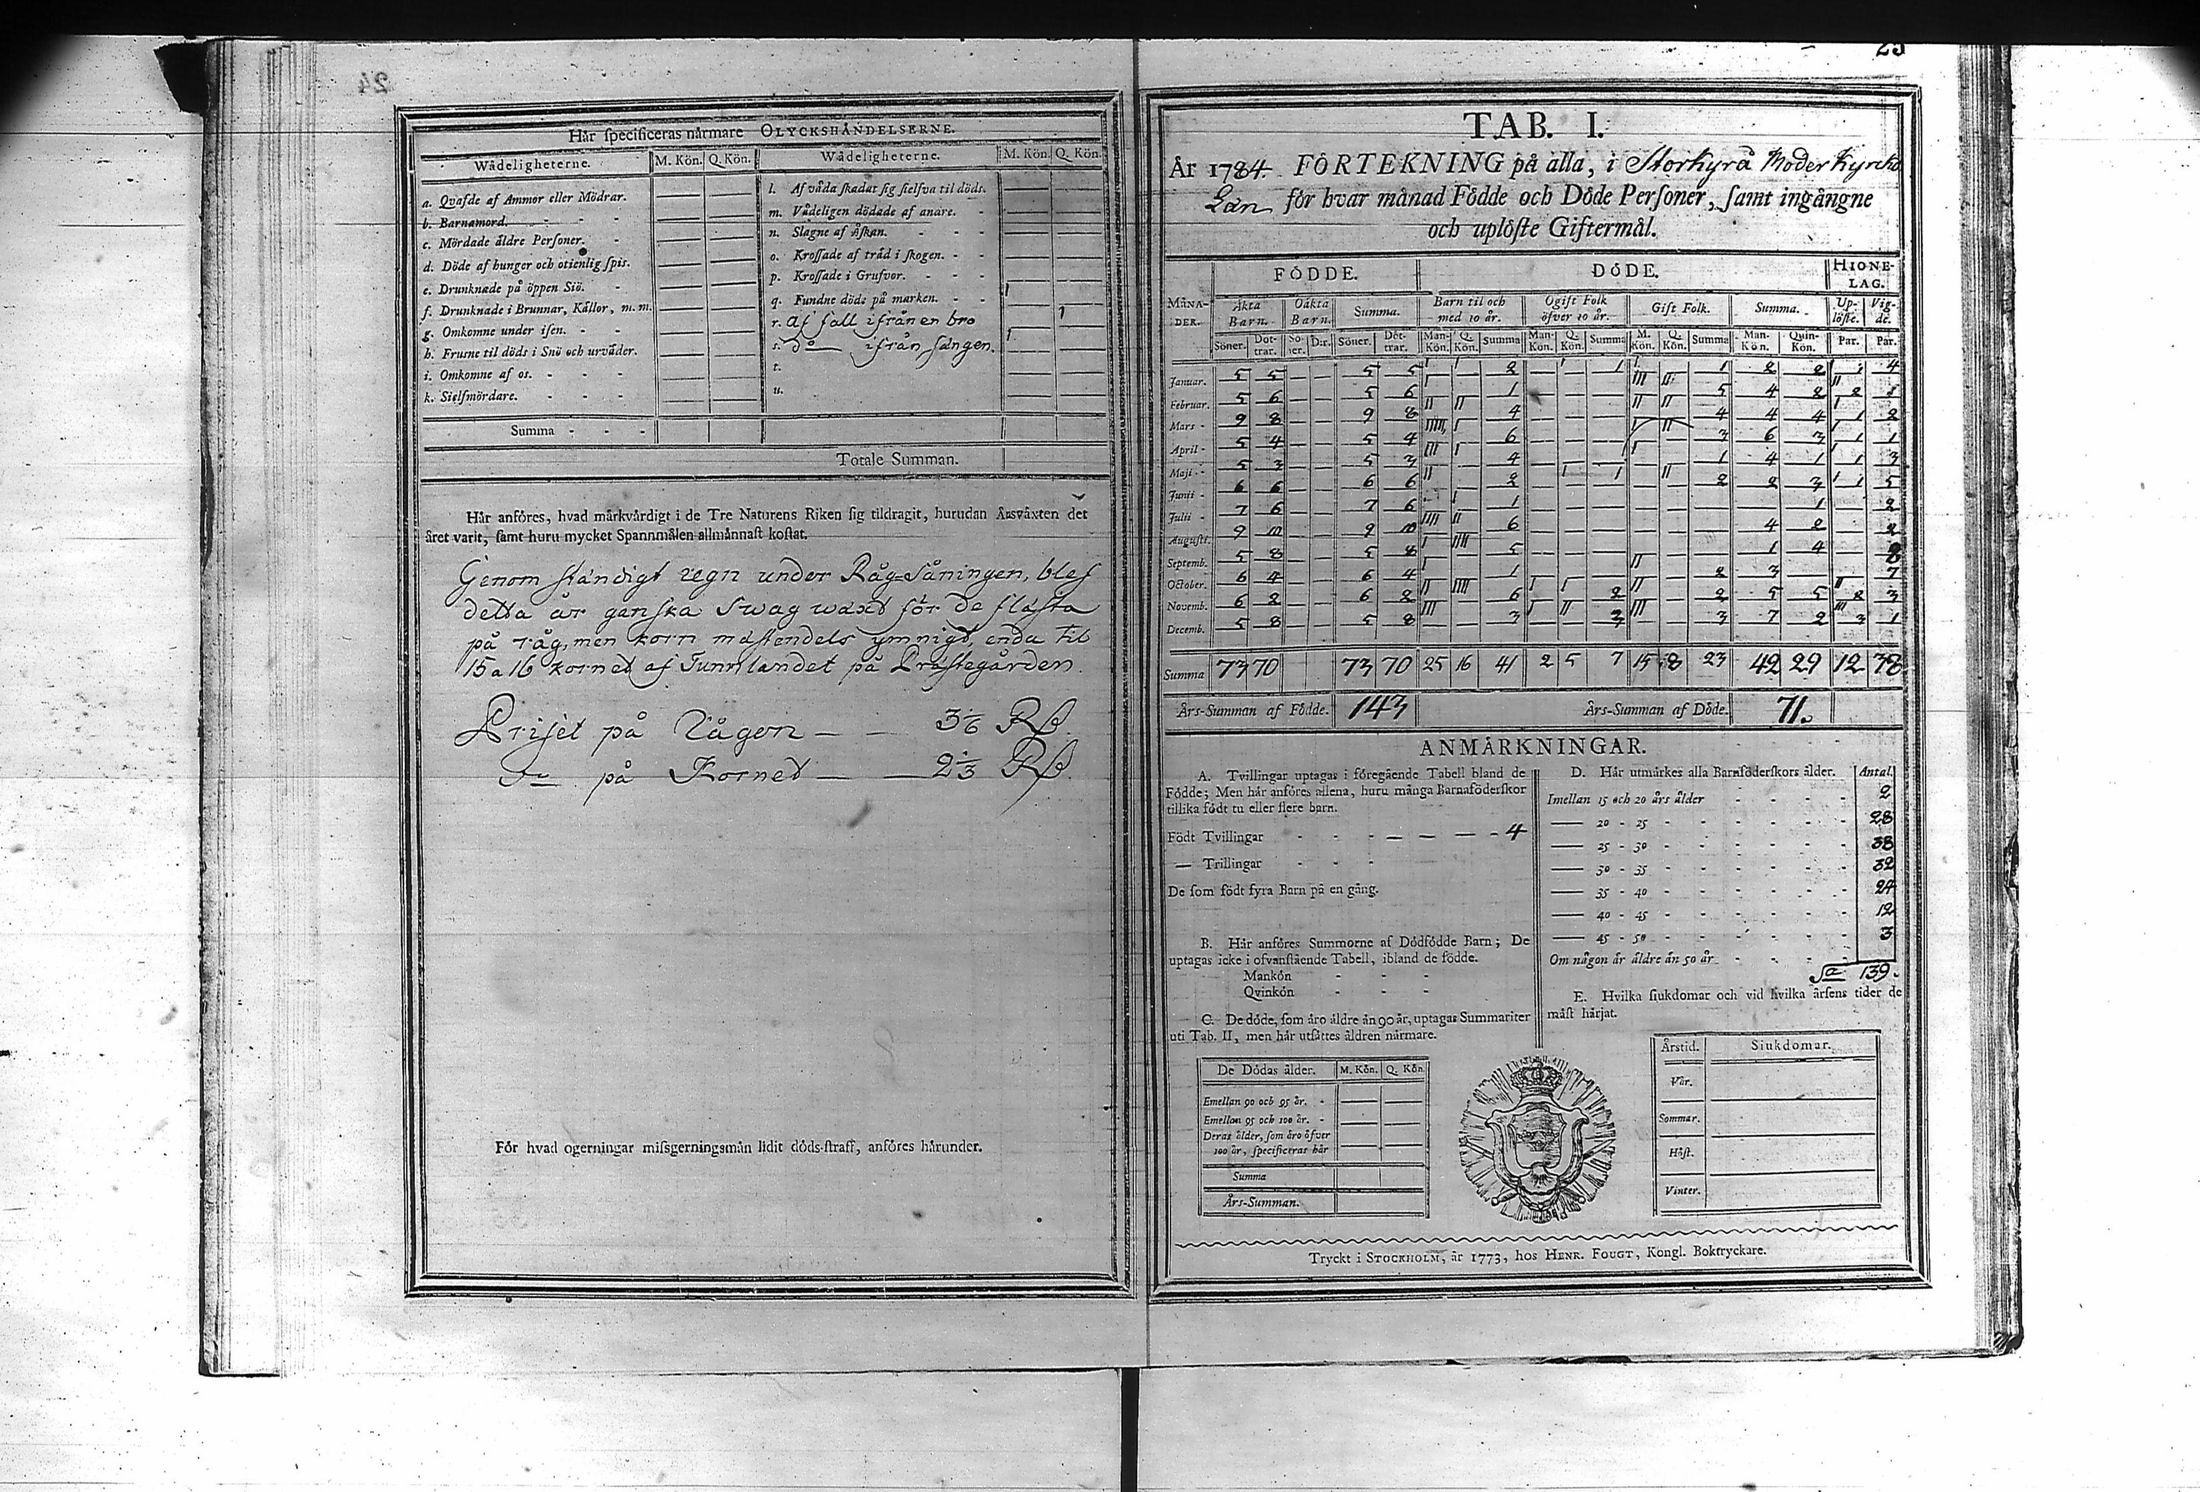 24
Hår specificeras nårmare OLYCKSHÅNDELSERNE.
Wådeligheterne. M. Kön. Q. Kön. Wådeligheterne. M. Kön. Q. Kön.
a. Qvafde af Ammor eller Mödrar.
b. Barnamord.
c. Mördade åldre Personer.
d. Döde af hunger och otienlig spis.
e. Drunknade på öppen Siö.
f. Drunknade i Brunnar, Kållor, m. m.
g. Omkomne under isen.
h. Frusne til döds i Snö och urvåder.
i. Omkomne af os.
k. Sielfmördare.
l. Af våda skadat sig sielfva til döds.
m. Vådeligen dödade af anare.
n. Slagne af Åskan.
o. Krossade af tråd i skogen.
p. Krossade i Grufvor.
q. Fundne döde på marken. 1
r. Af fall ifrån en bro 1
s. Do ifrån sången. 1
t.
u.
Summa
Totale Summan.
Hår anföres, hvad mårkvårdigt i de Tre Naturens Riken sig tildragit, hurudan Årsvåxten det
året varit, samt huru mycket Spannmålen allmånnast kostat.
Genom ståndigt regn under Råg-Såningen, blef
detta år ganska swag wäxt för de flåsta
på råg, men korn måstendels ymnigt, enda til
15 a 16 kornet af Tunnlandet på Pråstegården.
Priset på Rågen — — 3 1/6 R
Do på Kornet — — 2 1/3 R
För hvad ogerningar missgerningsmån lidit döds-straff, anföres hårunder.
25
TAB. I.
År 1784. FÖRTEKNING på alla, i Storkyrå Moder Kyrcko
Lån för hvar månad Födde och Döde Personer, samt ingångne
och uplöste Giftermål.
MÅNADER. FÖDDE. DÖDE. HIONELAG.
Åkta Barn. Oåkta Barn. Summa. Barn til och med 10 år. Ogift Folk öfver 10 år. Gift Folk. Summa. Uplöste. Vigde.
Söner. Döttrar. Söner. D:r. Söner. Döttrar. Man-Kön. Q. Kön. Summa Man-Kön. Q. Kön. Summa M. Kön. Q. Kön. Summa Man-Kön. Quin-Kön. Par. Par.
Januar. 5 5 — — 5 5 I I 2 — I 1 I — 1 2 2 1 4
Februar. 5 6 — — 5 6 I — 1 — — — III II 5 4 2 2 1
Mars 9 8 — — 9 8 II II 4 — — — II II 4 4 4 1 2
April 5 4 — — 5 4 IIIII I 6 — — — I II 3 6 3 1 1
Maji 5 3 — — 5 3 III I 4 — — — I — 1 4 1 1 3
Junii 6 6 — — 6 6 II — 2 — I 1 — II 2 2 3 1 5
Julii 7 6 — — 7 6 — I 1 — — — — — — — 1 — 2
Augusti. 9 10 — — 9 10 IIII II 6 — — — — — — 4 2 — 2
Septemb. 5 8 — — 5 8 I IIII 5 — — — — — — 1 4 — 8
October. 6 4 — — 6 4 I — 1 — — — II — 2 3 — — 7
Novemb. 6 2 — — 6 2 II IIII 6 I I 2 II — 2 5 5 2 3
Decemb. 5 8 — — 5 8 III — 3 I II 3 III — 3 7 2 3 1
Summa 73 70 73 70 25 16 41 2 5 7 15 8 23 42 29 12 38
Års-Summan af Födde. 143 Års-Summan af Döde. 71.
ANMÅRKNINGAR.
A. Tvillingar uptagas i föregående Tabell bland de
Födde; Men hår anföres allena, huru många Barnaföderskor
tillika födt tu eller flere barn.
Födt Tvillingar — — — 4
— Trillingar
De som födt fyra Barn på en gång.
B. Hår anföres Summorne af Dödfödde Barn; De
uptagas icke i ofvanstående Tabell, ibland de födde.
Mankön
Qvinkön
C. De döde, som åro åldre ån 90 år, uptagas Summariter
uti Tab. II, men hår utsåttes åldren nårmare.
De Dödas ålder. M. Kön. Q. Kön.
Emellan 90 och 95 år.
Emellan 95 och 100 år.
Deras ålder, som åro öfver
100 år, specificeras hår
Summa
Års-Summan.
D. Hår utmårkes alla Barnföderskors ålder. Antal.
Imellan 15 och 20 års ålder 2
— 20 - 25 28
— 25 - 30 38
— 30 - 35 32
— 35 - 40 24
— 40 - 45 12
— 45 - 50 3
Om någon år åldre ån 50 år
Sa 139.
E. Hvilka siukdomar och vid hvilka årsens tider de
måst hårjat.
Årstid. Siukdomar.
Vår.
Sommar.
Höst.
Vinter.
Tryckt i STOCKHOLM, år 1773, hos HENR. FOUGT, Kongl. Boktryckare.